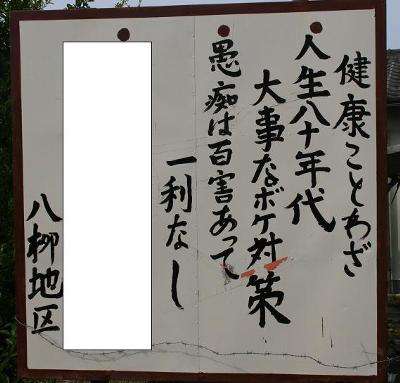 健康ことわざ
人生八十年代
大事なボケ対策
愚痴は百害あって
一利なし
八柳地区